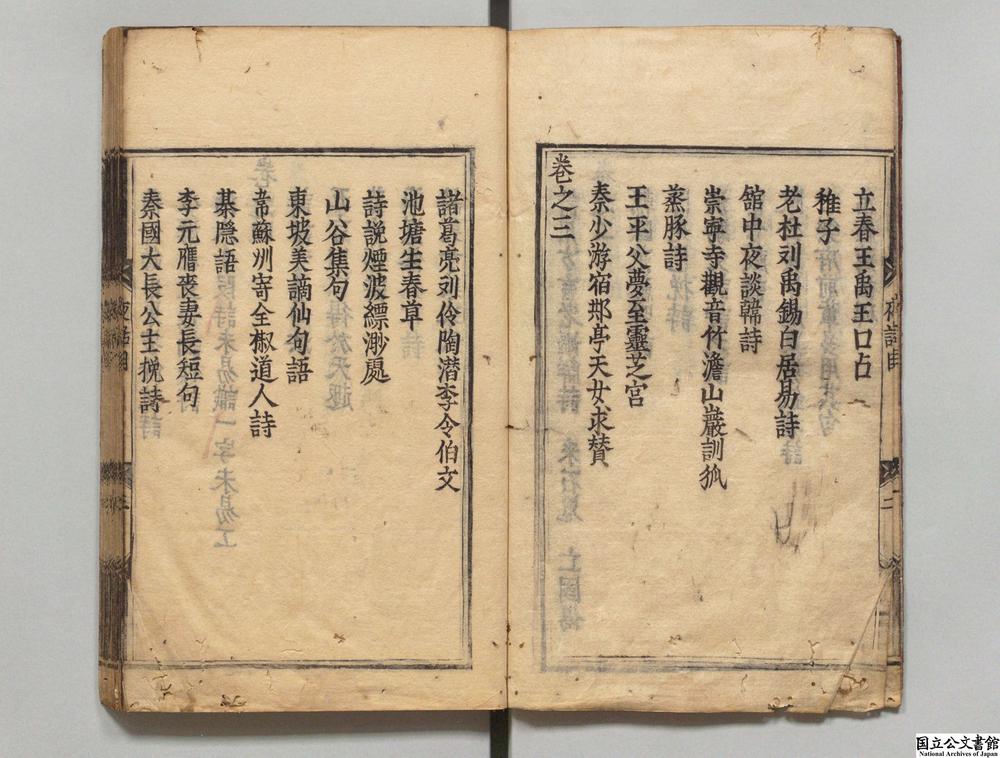 立春王禹玉口占
稚子
老杜刘禹錫白居易詩
舘中夜談韓詩
崇寧寺觀音竹澹山巖訓狐
蒸豚詩
王平父夢至靈芝宫
秦少游宿邺亭天女求賛
卷之三
諸葛亮刘伶陶潜李令伯文
池塘生春草
詩說煙波縹渺處
山谷集句
東坡美謫仙句語
韋蘇州寄全椒道人詩
棊隱語
李元膺喪妻長短句
秦國大長公主挽詩
国立公文書館
National Archives of Japan